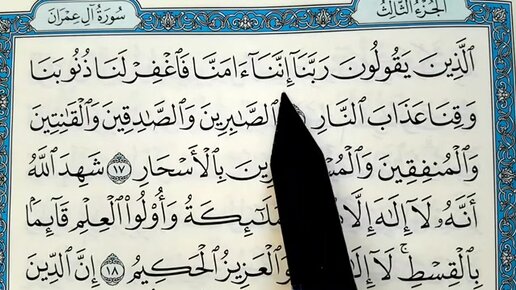 الجُزْءُ الثَّالِثُ
سُورَةُ آلِ عِمْرَانَ
ٱلَّذِينَ يَقُولُونَ رَبَّنَآ إِنَّنَآ ءَامَنَّا فَٱغْفِرْ لَنَا ذُنُوبَنَا
وَقِنَا عَذَابَ ٱلنَّارِ ٱلصَّٰبِرِينَ وَٱلصَّٰدِقِينَ وَٱلْقَٰنِتِينَ
وَٱلْمُنفِقِينَ بِٱلْأَسْحَارِ ١٧ شَهِدَ ٱللَّهُ
أَنَّهُۥ لَآ إِلَٰهَ إِلَّا وَأُو۟لُوا۟ ٱلْعِلْمِ قَآئِمًۢا
بِٱلْقِسْطِ ۚ لَآ ٱلْعَزِيزُ ٱلْحَكِيمُ ١٨ إِنَّ ٱلدِّينَ